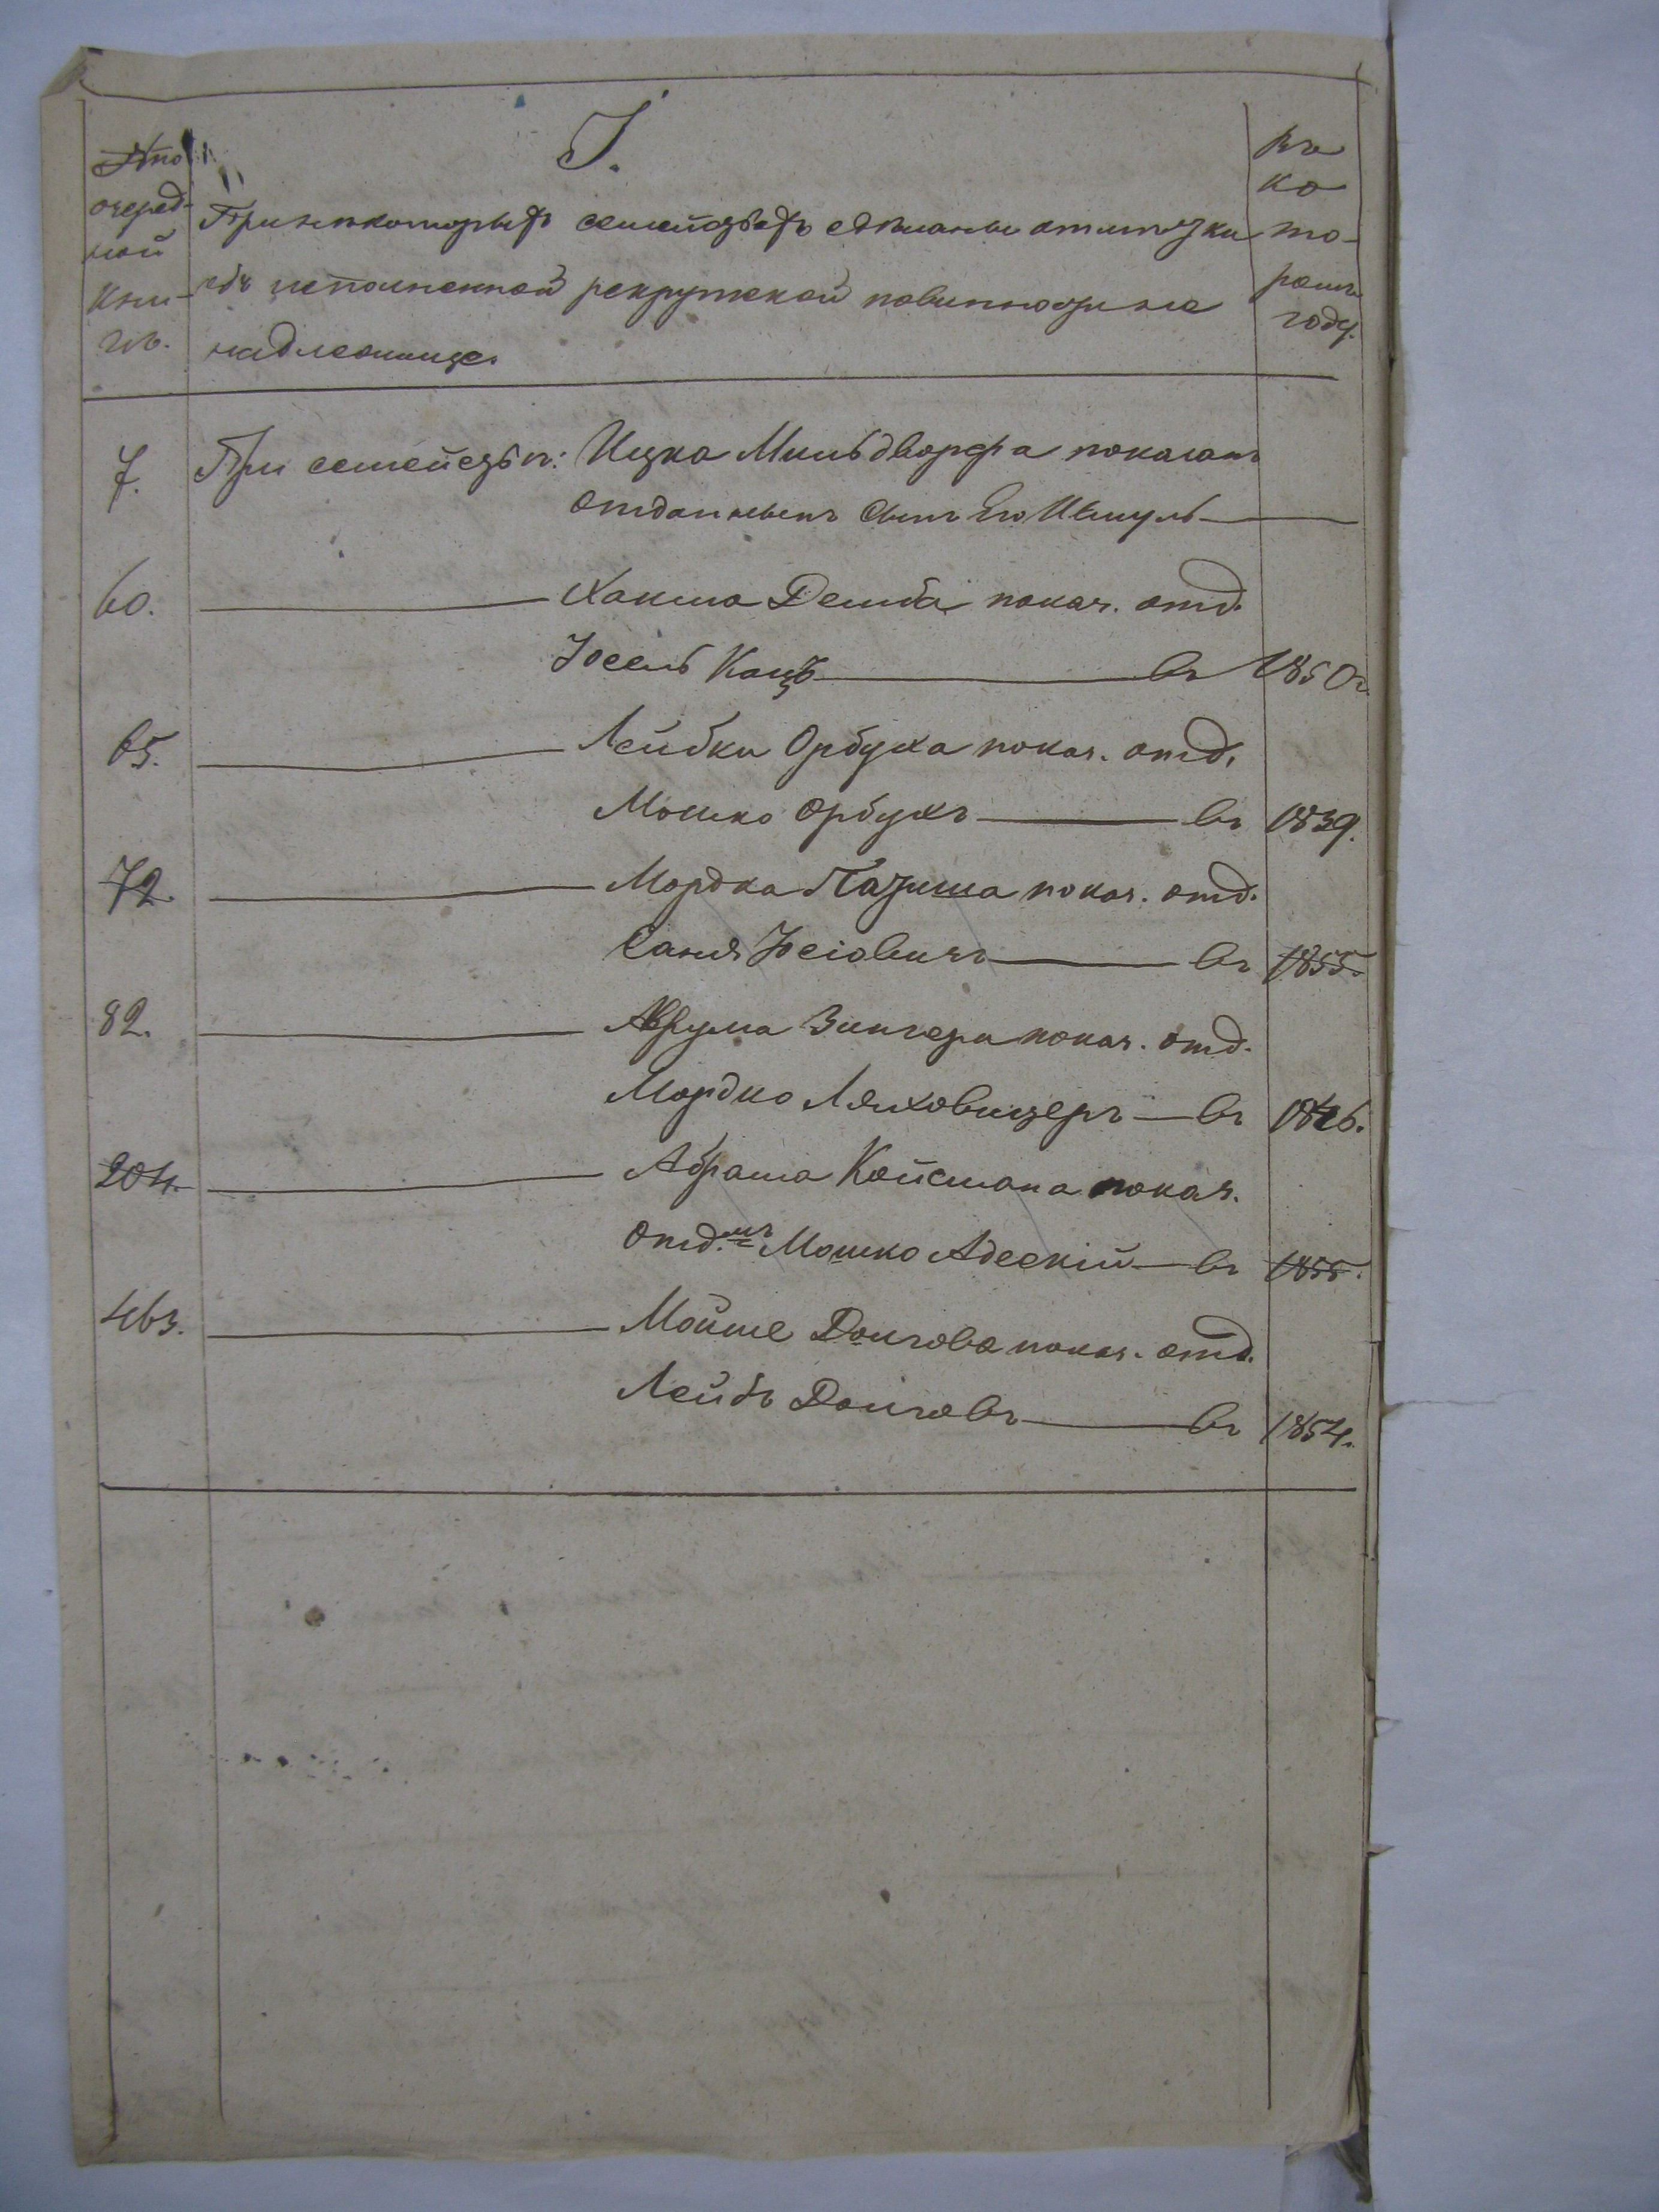 I.
№ по очеред-
ной
кни-
гѣ.
При нѣкоторыхъ семействахъ сдѣланы отмѣтки
объ исполненной рекрутской повинности не
надлежаще.
Въ
ко
то-
ромъ
году.
7. При семействѣ: Ицка Мильдворфа показанъ
отданнымъ сынъ его Шмуль
60. Хаима Демба показ. отд.
Іосель Кацъ въ 1850 г.
65. Лейбки Орбуха показ. отд.
Мошко Орбухъ въ 1839.
72. Мордка показ. отд.
въ 1855.
82. Аврума Зингера показ. отд.
Мордко Ляховицеръ въ
204. Абрама Койсмана показ.
отд.мъ Мошко Адескій въ 1855.
463. Мойше Долгова показ. отд.
Лейбъ Долговъ въ 1854.